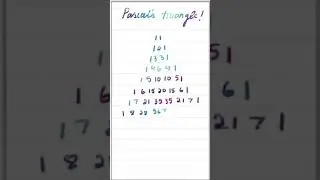 Pascal's triangle!
1 1
1 2 1
1 3 3 1
1 4 6 4 1
1 5 10 10 5 1
1 6 15 20 15 6 1
1 7 21 35 35 21 7 1
1 8 28 56